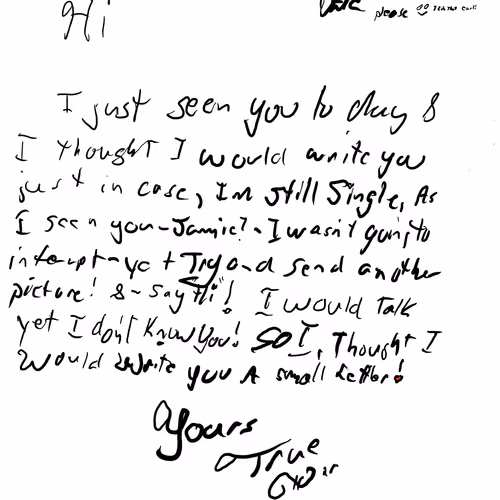 Hi
please
I just seen you to day &
I thought I would write you
just in case, Im still Single, As
I seen you - Jamie? - I wasn't going to
interupt - yo + Try and send another
picture! & - say Hi! I would Talk
yet I don't Know You! SO I, Thought I
Would Write you A small Letter!
Yours
True